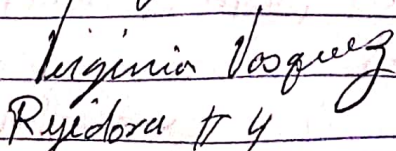 Virginia Vasquez
Rejidora # 4